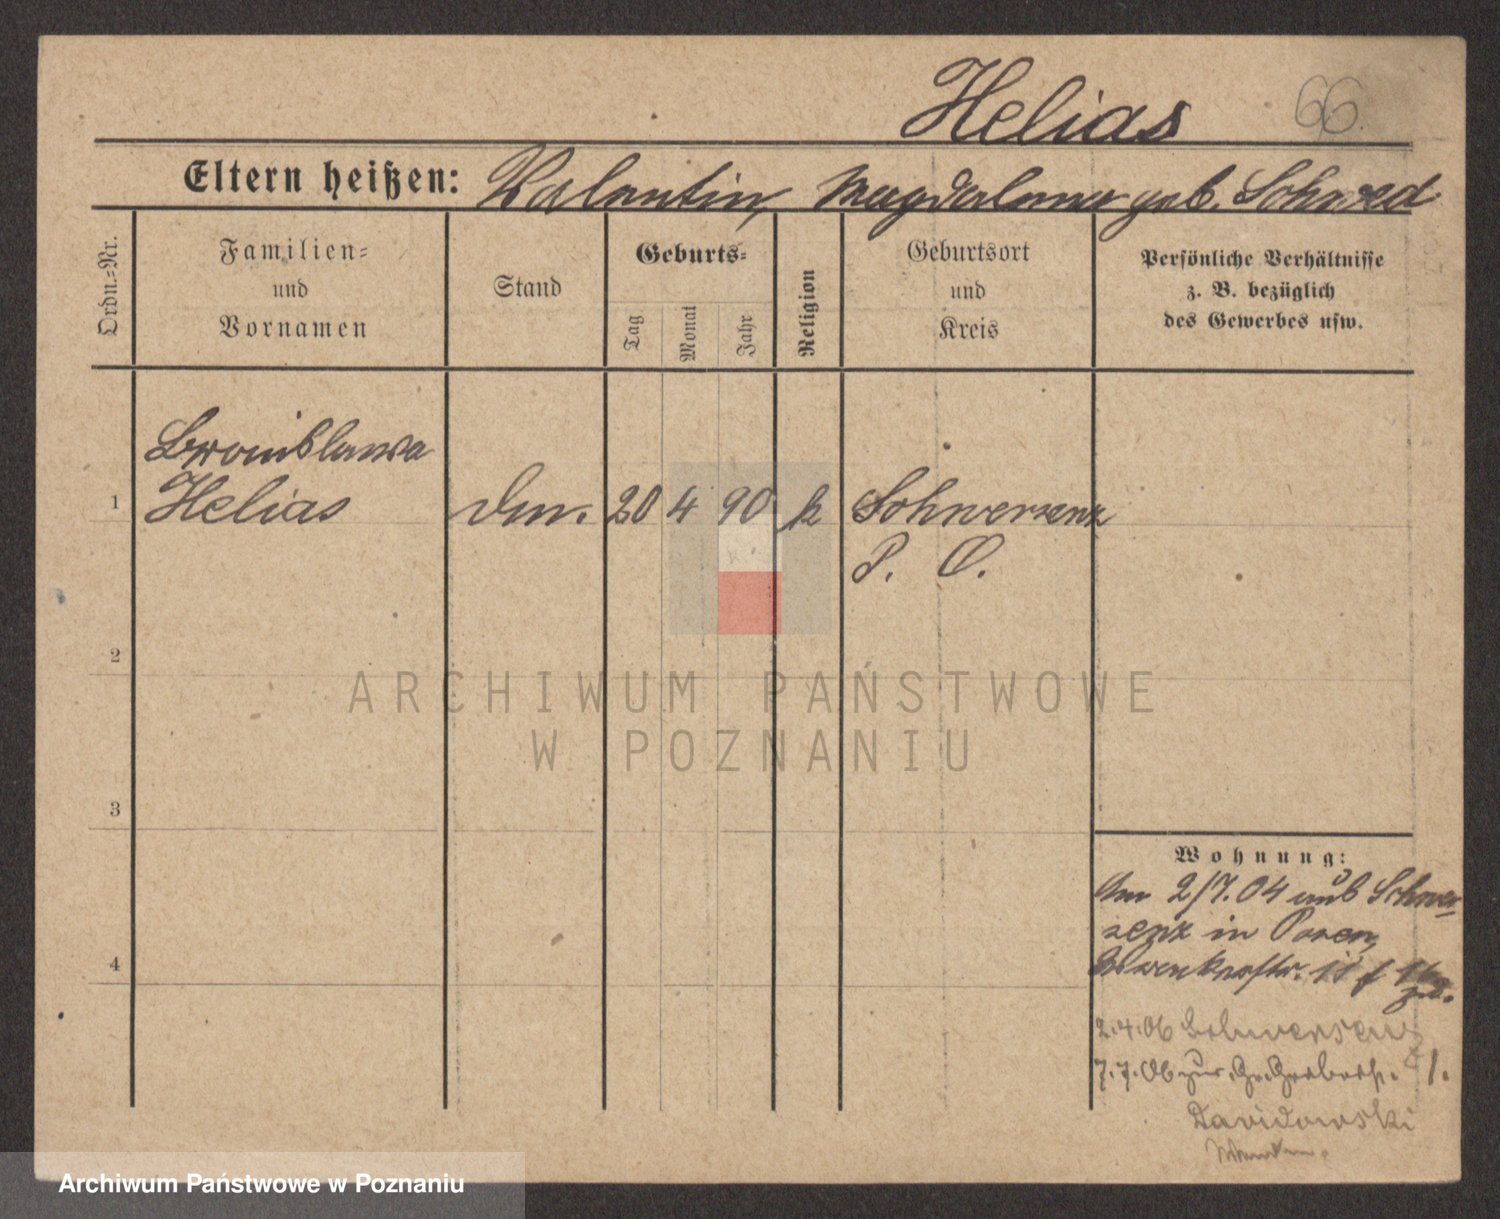 Helias 66
Eltern heißen: Valentin, Magdalena geb. Schwed
Ordn.-Nr.
Familien-
und
Vornamen
Stand
Geburts-
Tag
Monat
Jahr
Religion
Geburtsort
und
Kreis
Persönliche Verhältnisse
z. B. bezüglich
des Gewerbes usw.
Bronislawa
1 Helias 20 4 90 k Schwersenz
P. O.
2
3
4
ARCHIWUM PAŃSTWOWE
W POZNANIU
Wohnung:
Am 2/7.04 aus Schwer-
senz in Posen,
2.4.06 Schwersenz
7.7.06 zur Gr. Gerberstr. 1.
Davidowski
Archiwum Państwowe w Poznaniu